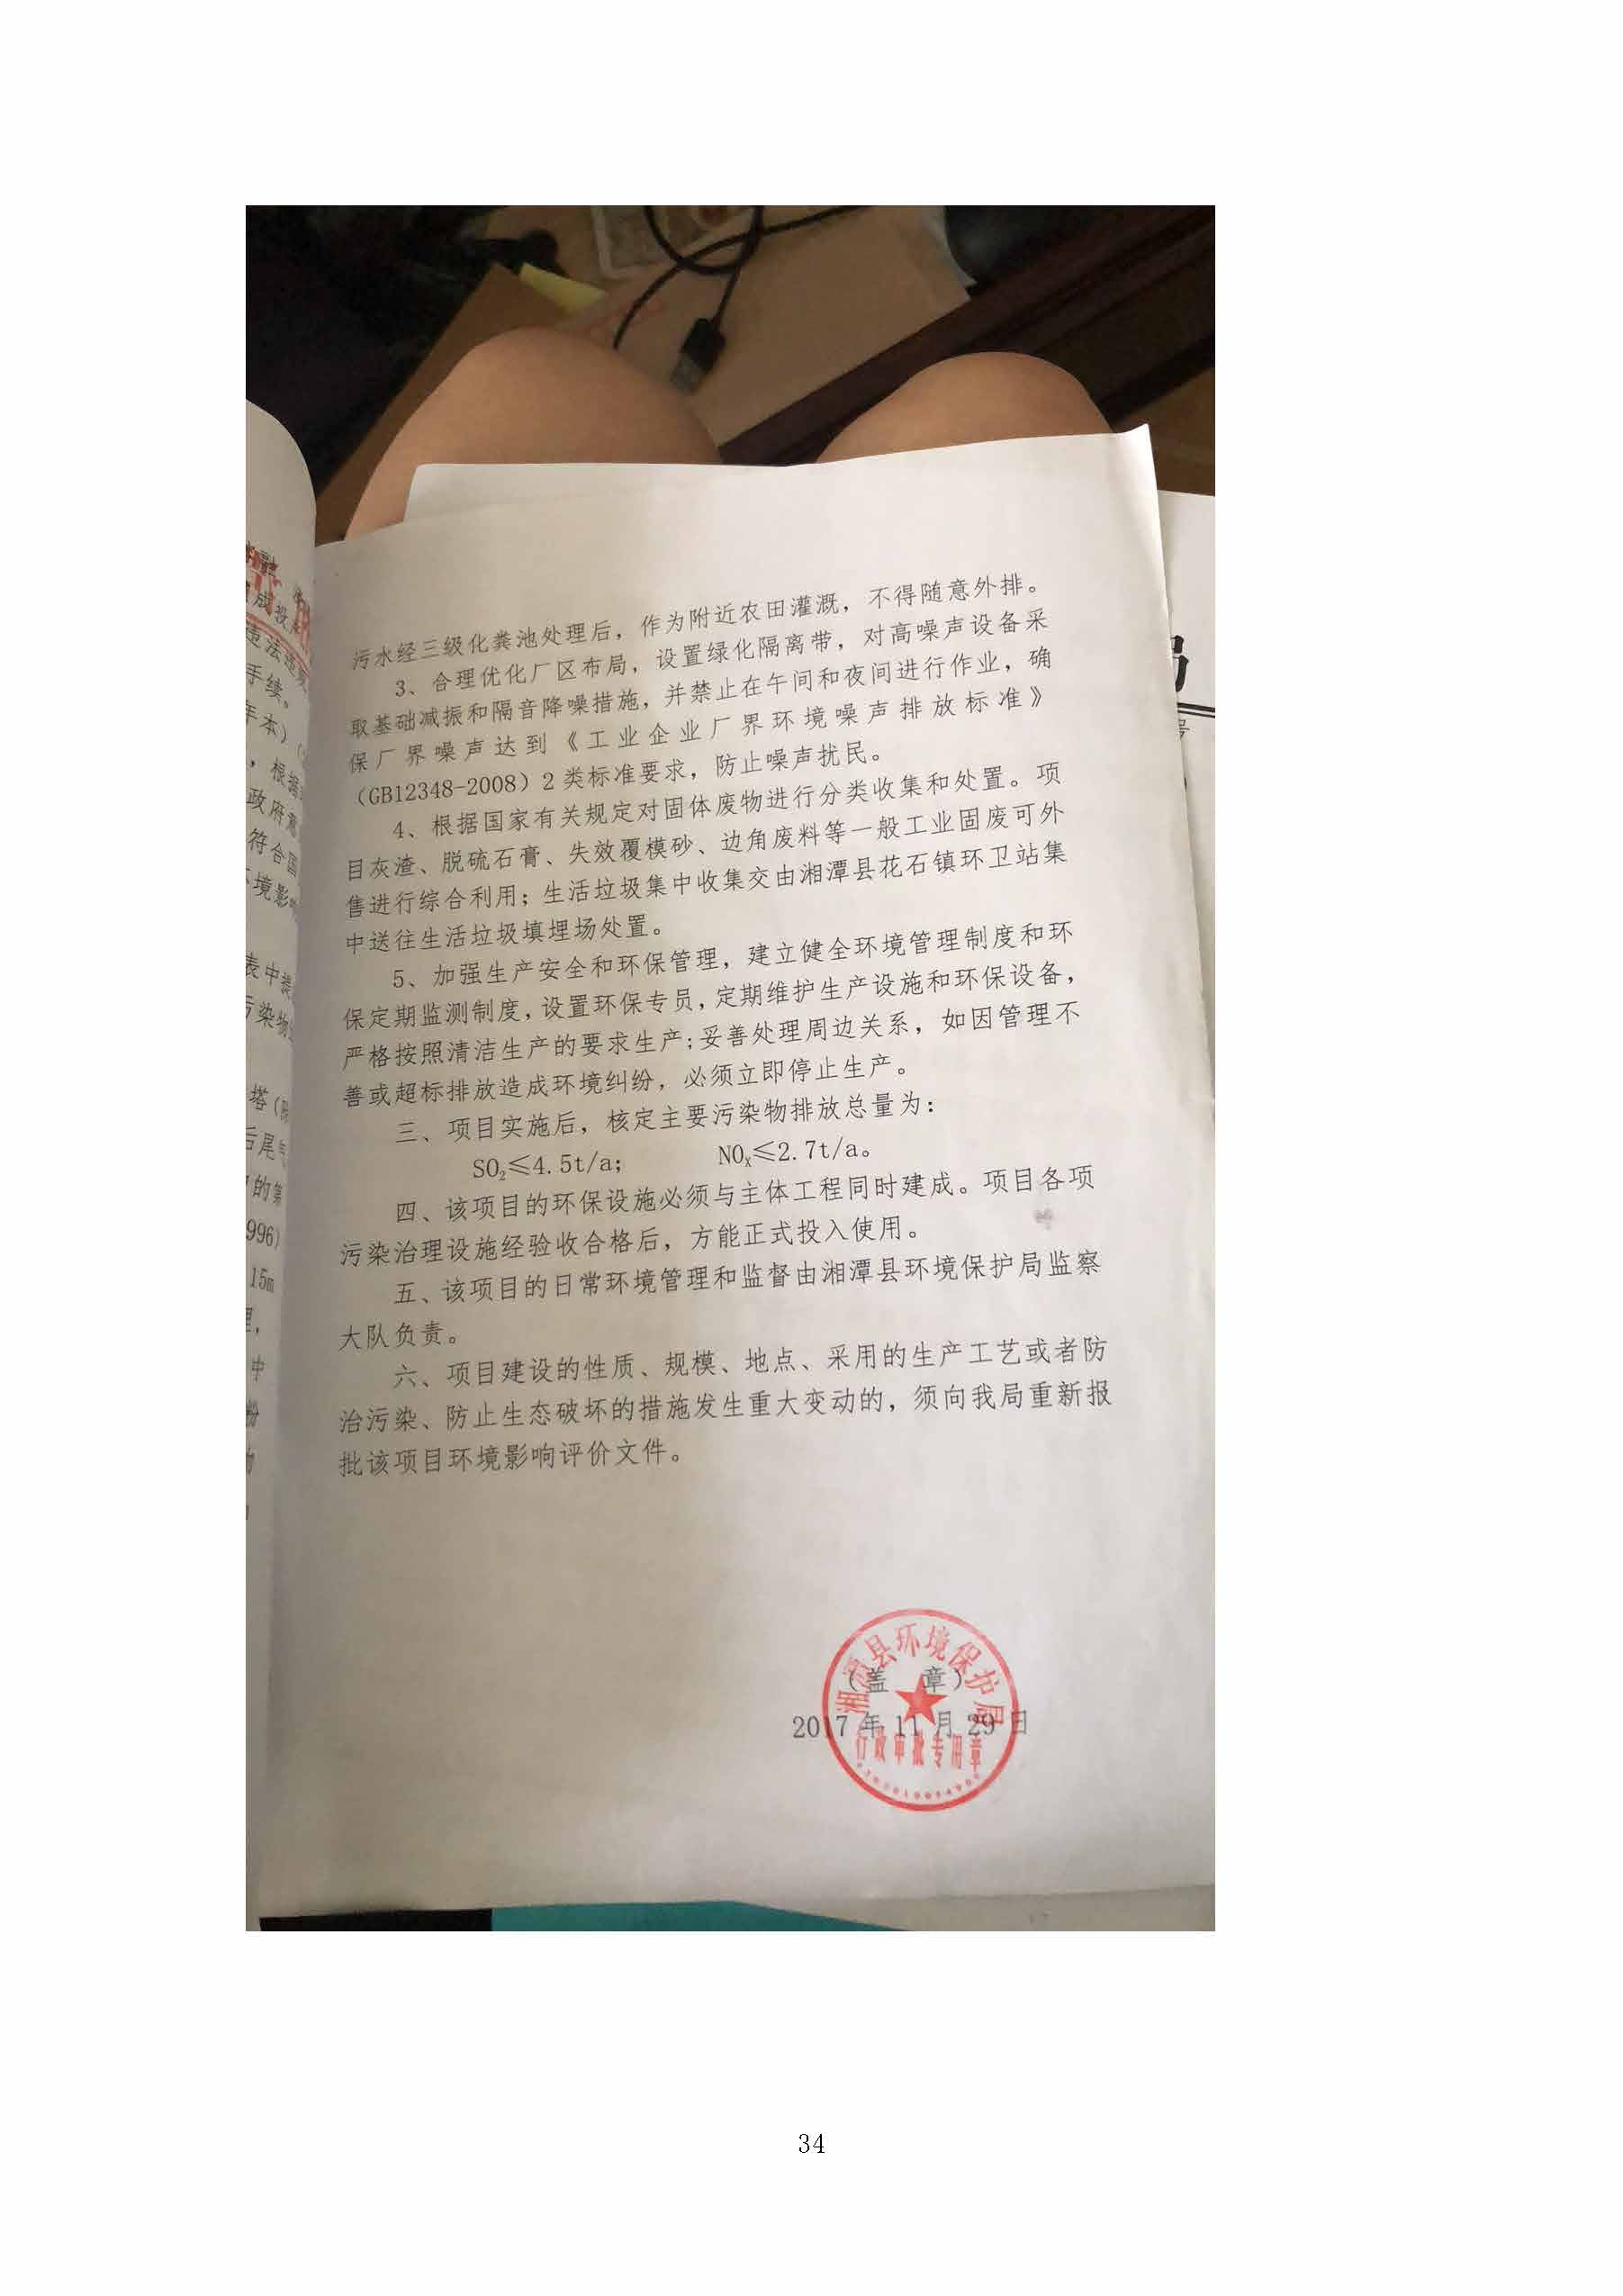 污水经三级化粪池处理后，作为附近农田灌溉，不得随意外排。
3、合理优化厂区布局，设置绿化隔离带，对高噪声设备采
取基础减振和隔音降噪措施，并禁止在午间和夜间进行作业，确
保厂界噪声达到《工业企业厂界环境噪声排放标准》
（GB12348-2008）2类标准要求，防止噪声扰民。
4、根据国家有关规定对固体废物进行分类收集和处置。项
目灰渣、脱硫石膏、失效覆模砂、边角废料等一般工业固废可外
售进行综合利用；生活垃圾集中收集交由湘潭县花石镇环卫站集
中送往生活垃圾填埋场处置。
5、加强生产安全和环保管理，建立健全环境管理制度和环
保定期监测制度，设置环保专员，定期维护生产设施和环保设备，
严格按照清洁生产的要求生产；妥善处理周边关系，如因管理不
善或超标排放造成环境纠纷，必须立即停止生产。
三、项目实施后，核定主要污染物排放总量为：
SO₂≤4.5t/a； NOₓ≤2.7t/a。
四、该项目的环保设施必须与主体工程同时建成。项目各项
污染治理设施经验收合格后，方能正式投入使用。
五、该项目的日常环境管理和监督由湘潭县环境保护局监察
大队负责。
六、项目建设的性质、规模、地点、采用的生产工艺或者防
治污染、防止生态破坏的措施发生重大变动的，须向我局重新报
批该项目环境影响评价文件。
湘潭县环境保护局
（盖 章）
2017年11月29日
行政审批专用章
成投
违法违规
手续。
年本）
，根据
政府意
符合国
环境影响
表中提
污染物
塔（脱
后尾气
的第
996）
15m
中
粉
34